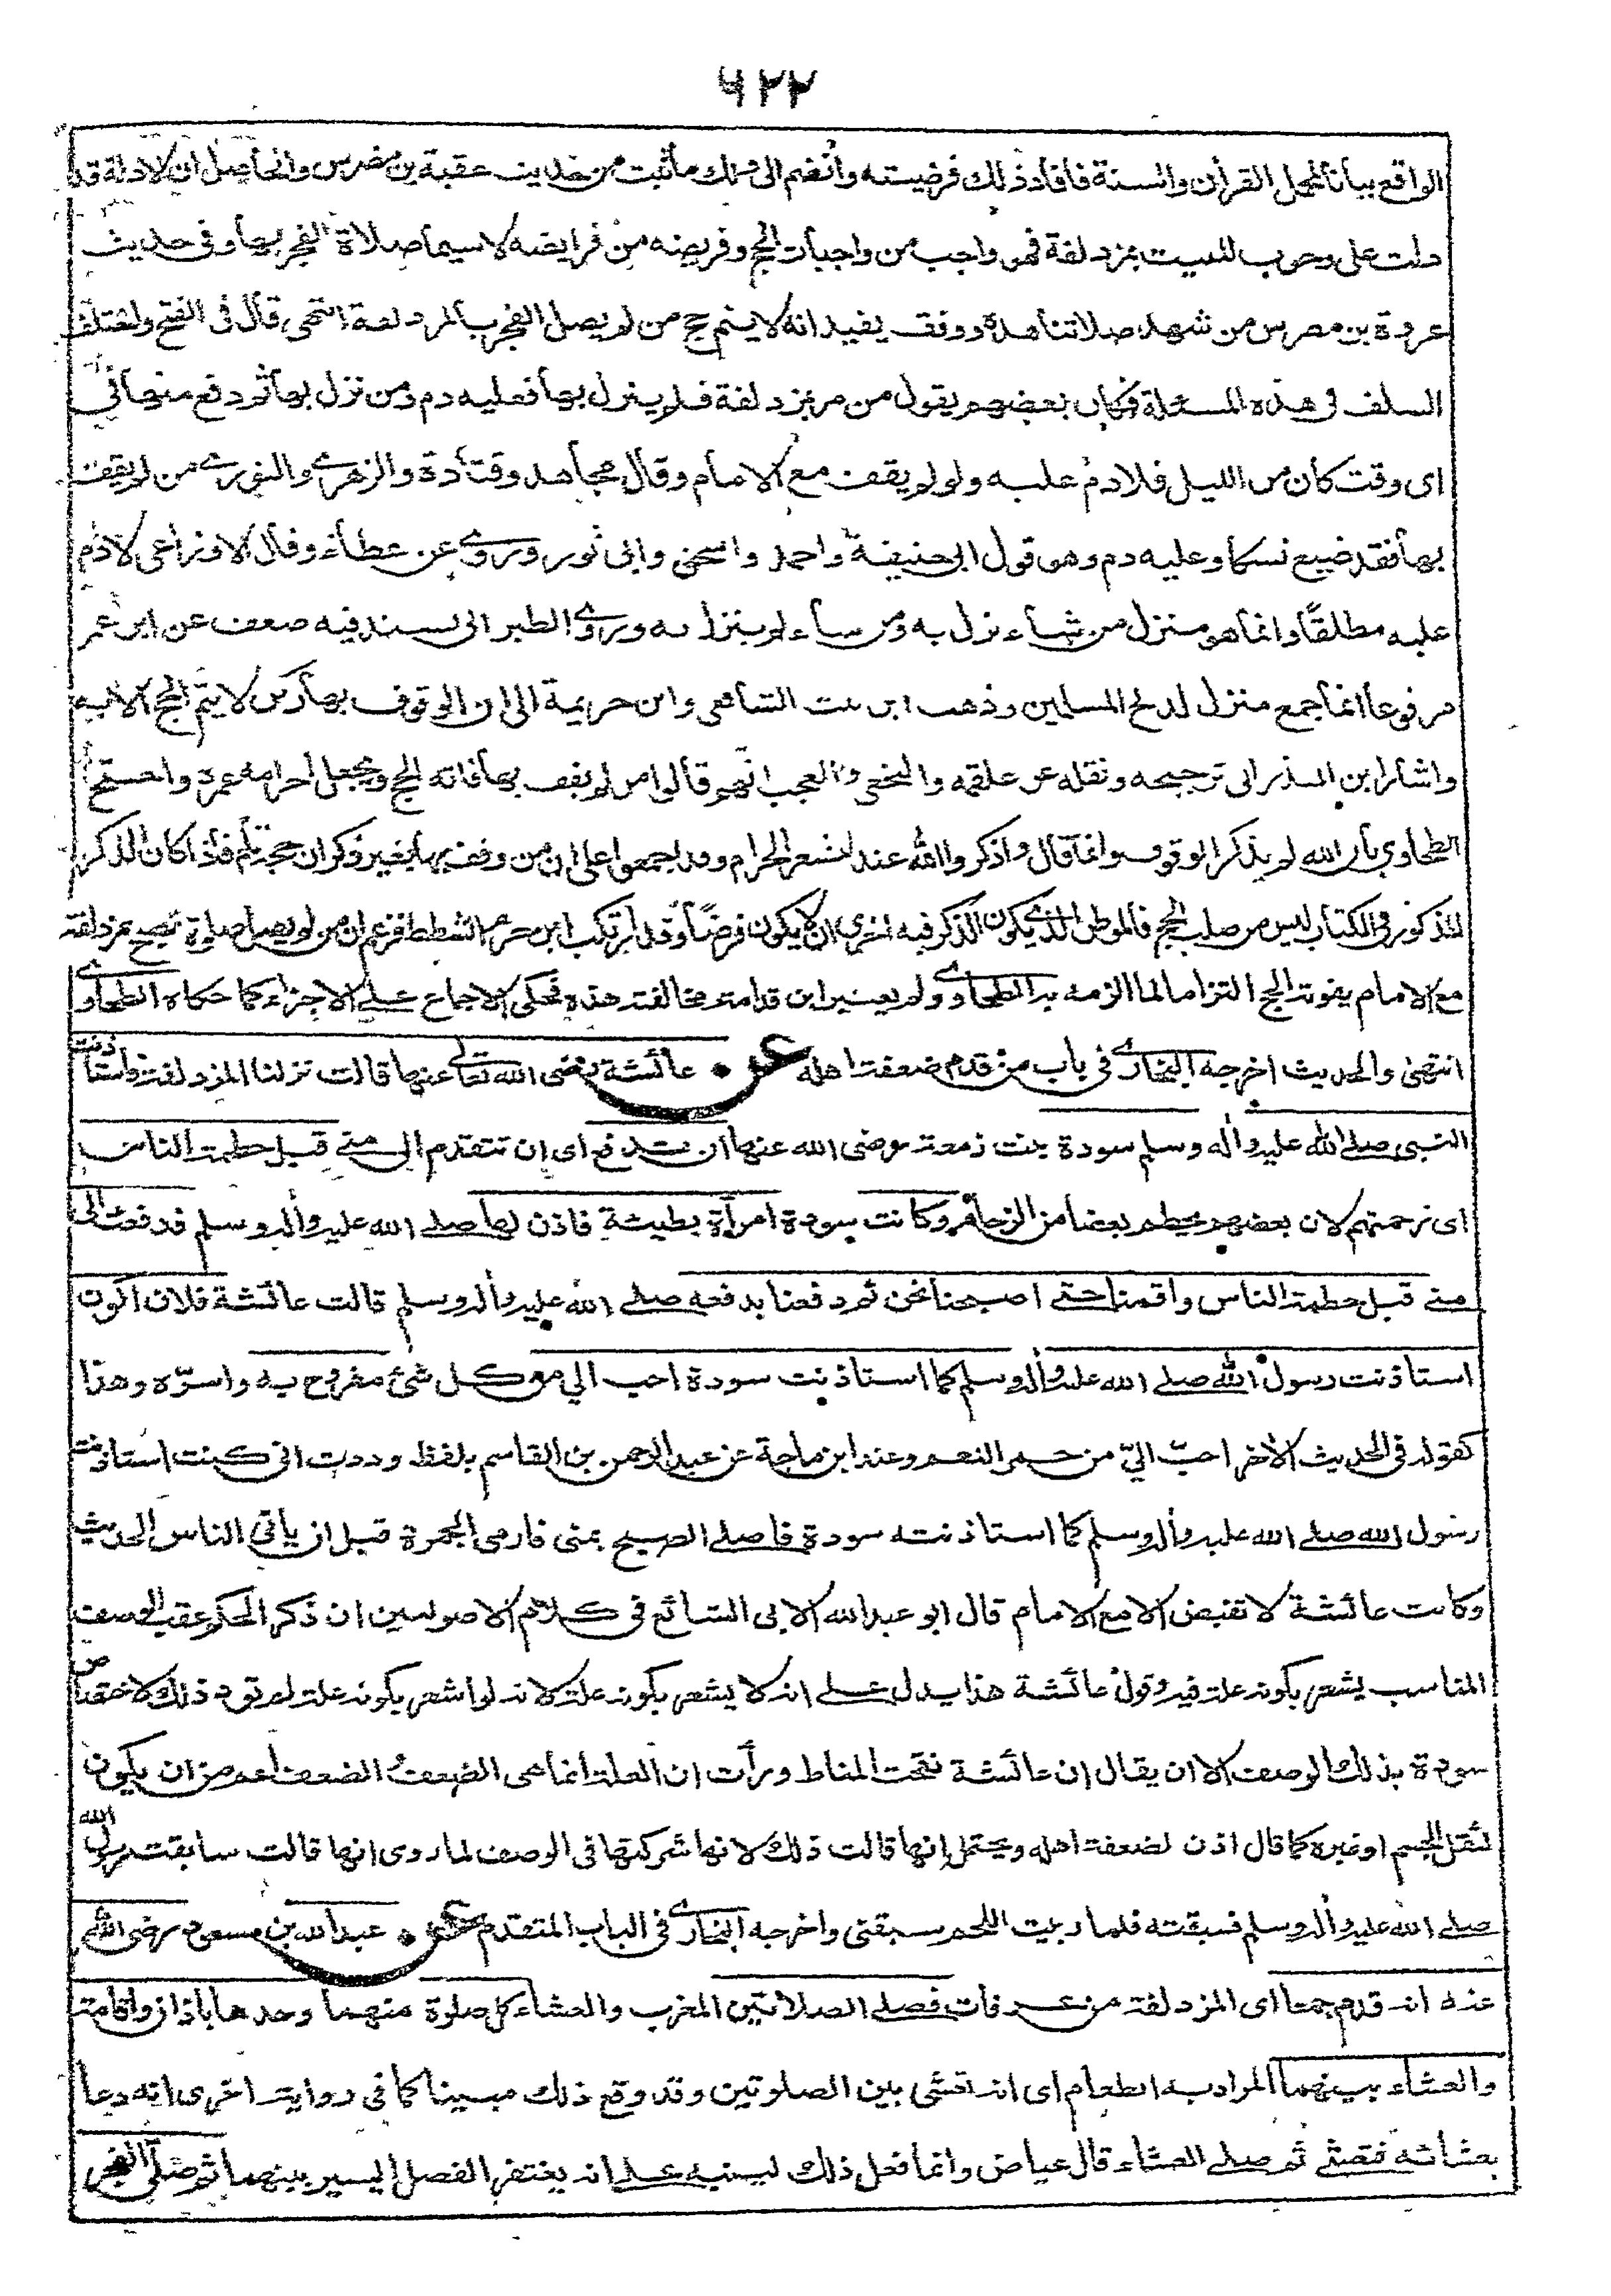 ٦٢٢
الواقع بيانا لمجمل القرآن والسنة فافاد ذلك فرضيته وانضم الى ذلك ما ثبت من حديث عقبة بن مضرس والحاصل ان الادلة قد
دلت على وجوب المبيت بمزدلفة فهو واجب من واجبات الحج وفريضه من فرايضه لا سيما صلاة الفجر بها وفي حديث
عروة بن مضرس من شهد صلاتنا هذه ووقف يفيد انه لا يتم حج من لم يصل الفجر بالمزدلفة انتهى قال في الفتح واختلف
السلف في هذه المسئلة فكان بعضهم يقول من مر بمزدلفة فلم ينزل بها فعليه دم ومن نزل بها ثم دفع منها في
اى وقت كان من الليل فلا دم عليه ولو لم يقف مع الامام وقال مجاهد وقتادة والزهرى والثورى من لم يقف
بها فقد ضيع نسكا وعليه دم وهو قول ابي حنيفة واحمد واسحق وابي ثور وروى عن عطاء وقال الاوزاعى لا دم
عليه مطلقًا وانما هو منزل من شاء نزل به ومن شاء لم ينزل به وروى الطبراني بسند فيه ضعف عن ابن عمر
مرفوعا انما جمع منزل لدلج المسلمين وذهب ابن بنت الشافعي وابن خزيمة الى ان الوقوف بها ركن لا يتم الحج الا به
واشار ابن المنذر الى ترجيحه ونقله عن علقمه والنخعي والعجب انهم قالوا من لم يقف بها فاته الحج ويجعل احرامه عمرة واحتج
الطحاوي بان الله لم يذكر الوقوف وانما قال واذكروا الله عند المشعر الحرام وقد اجمعوا على ان من وقف بها بغير ذكر ان حجه تام فاذا كان الذكر
المذكور في الكتاب ليس من صلب الحج فالموطن الذي يكون الذكر فيه احرى ان لا يكون فرضًا وقد ارتكب ابن حزم الشطط فزعم ان من لم يصل صلوة الصبح بمزدلفة
مع الامام يفوته الحج التزاما لما الزمه به الطحاوى ولم يعتبر ابن قدامة مخالفته هذه فحكى الاجماع على الاجزاء كما حكاه الطحاوى
انتهى والحديث اخرجه البخارى في باب من قدم ضعفة اهله عن عائشة رضى الله تعالى عنها قالت نزلنا المزدلفة فاستأذنت
النبى صلى الله عليه واله وسلم سودة بنت زمعة رضى الله عنها ان تدفع اى ان تتقدم الى منى قبل حطمة الناس
اى زحمتهم لان بعضهم يحطم بعضا من الزحام وكانت سودة امرأة بطيئة فاذن لها صلى الله عليه واله وسلم فدفعت الى
منى قبل حطمة الناس واقمنا حتى اصبحنا نحن ثم دفعنا بدفعه صلى الله عليه واله وسلم قالت عائشة فلان اكون
استاذنت رسول الله صلى الله عليه واله وسلم كما استاذنت سودة احب الي من كل شئ مفروح به واسرّه وهذا
كقوله في الحديث الآخر احبّ اليّ من حمر النعم وعند ابن ماجة عن عبد الرحمن بن القاسم بلفظ وددت اني كنت استاذنت
رسول الله صلى الله عليه واله وسلم كما استاذنته سودة فاصلى الصبح بمنى فارمى الجمرة قبل ان ياتي الناس الحديث
وكانت عائشة لا تفيض الا مع الامام قال ابو عبد الله الابى الشائع في كلام الاصوليين ان ذكر الحكم عقب الوصف
المناسب يشعر بكونه علة فيه وقول عائشة هذا يدل على انه لا يشعر بكونه علة لانه لو اشعر بكونه علة لم ترد ذلك لاختصاص
سودة بذلك الوصف الا ان يقال ان عائشة نقحت المناط ورأت ان العلة انما هى الضعف والضعف اعم من ان يكون
لثقل الجسم او غيره كما قال اذن لضعفة اهله ويحتمل انها قالت ذلك لانها شركتها في الوصف لما روى انها قالت سابقت رسول الله
صلى الله عليه واله وسلم فسبقته فلما ربيت اللحم سبقنى واخرجه البخارى في الباب المتقدم عن عبد الله بن مسعود رضى الله
عنه انه قدم جمعا اى المزدلفة من عرفات فصلى الصلاتين المغرب والعشاء كل صلوة منهما وحدها باذان واقامة
والعشاء بينهما المراد به الطعام اى انه تعشى بين الصلوتين وقد وقع ذلك مبينا كما في رواية اخرى انه دعا
بعشائه فتعشى ثم صلى العشاء قال عياض وانما فعل ذلك لينبه على انه يغتفر الفصل اليسير بينهما ثم صلى الفجر